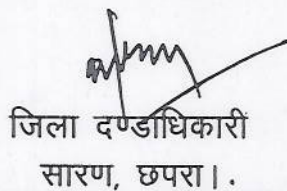 जिला दण्डाधिकारी
सारण, छपरा।.